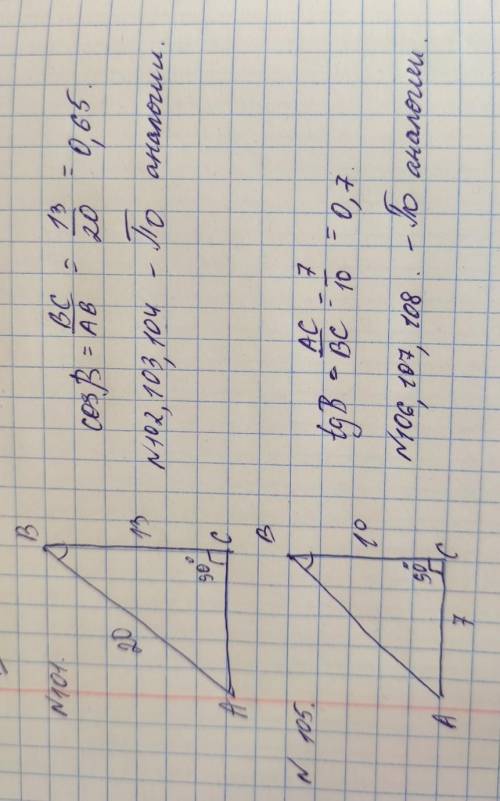 N101.
B
20
13
90°
A
C
cos B = BC/AB = 13/20 = 0,65.
N102, 103, 104 - По аналогии.
N 105.
B
10
90°
A
7
C
tg B = AC/BC = 7/10 = 0,7.
N106, 107, 108. - По аналогии.